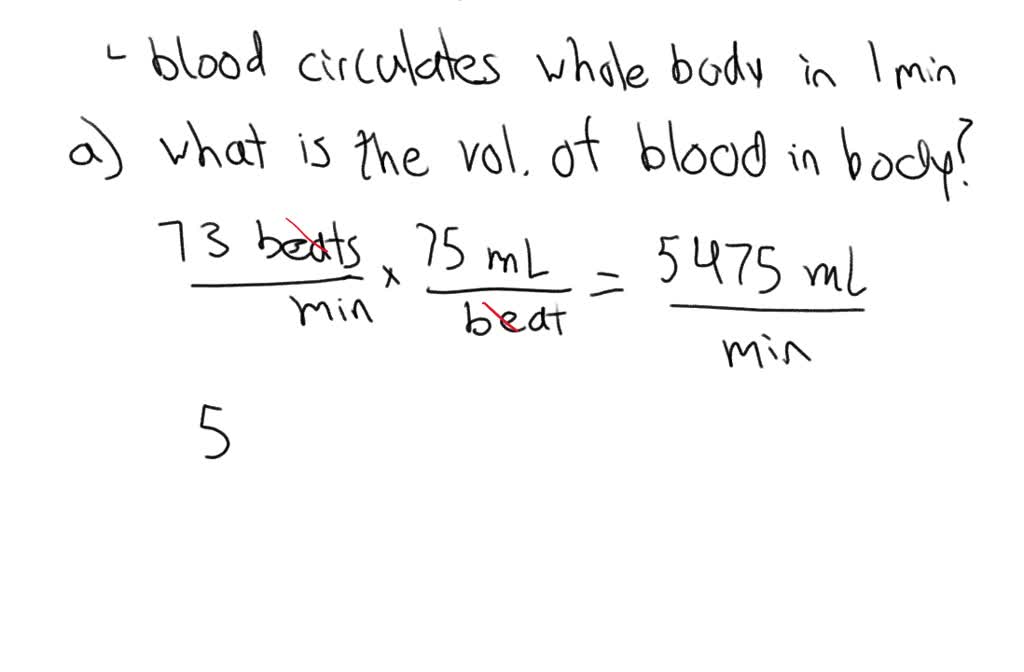 - blood circulates whole body in 1 min
a) what is the vol. of blood in body?
73 beats / min × 75 mL / beat = 5475 mL / min
5